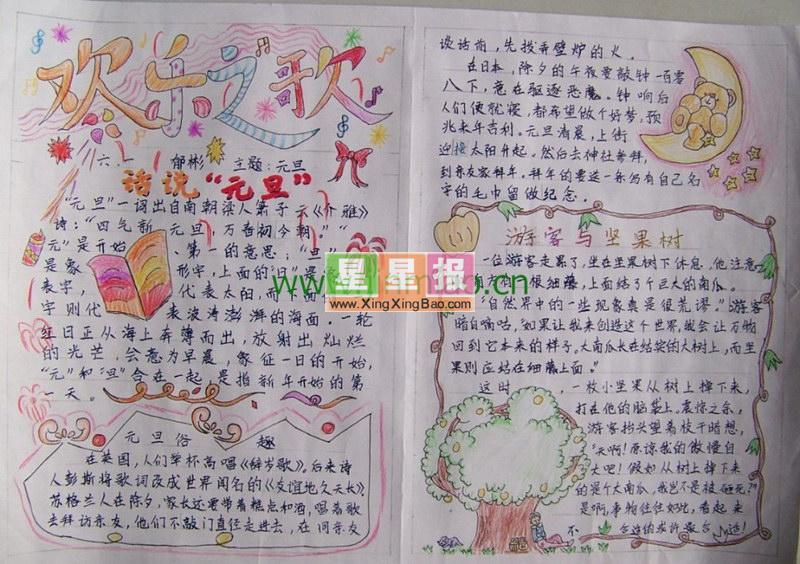 欢乐之歌
六.一 郁彬 主题:元旦
话说“元旦”
“元旦”一词出自南朝梁人萧子云《介雅》
诗:“四气新元旦,万寿初今朝。”“
元”是开始、第一的意思;“旦”
是象形字,上面的“日”是
表字, 代表太阳,而下面
字则代表波涛澎湃的海面。一轮
红日正从海上奔薄而出,放射出灿烂
的光芒,会意为早晨,象征一日的开始,
“元”和“旦”合在一起,是指新年开始的第
一天。
元旦俗趣
在英国,人们举杯高唱《辞岁歌》,后来诗
人彭斯将歌词改成世界闻名的《友谊地久天长》,
苏格兰人在除夕,家长还要带着糕点和酒,唱着歌
去拜访亲友,他们不敲门直径走进去,在同亲友
谈话前,先拨弄壁炉的火。
在日本,除夕的午夜要敲钟一百零
八下,意在驱逐恶魔。钟响后
人们便就寝,都希望做个好梦,预
兆来年吉利。元旦清晨,上街
迎接太阳升起。然后去神社参拜,
到亲友家拜年。拜年的要送一条仍有自己名
字的毛巾留做纪念。
游客与坚果树
一位游客走累了,坐在坚果树下休息,他注意
根细藤,上面结了个巨大的南瓜。
“自然界中的一些现象真是很荒谬。”游客
暗自嘀咕,“如果让我来创造这个世界,我会让万物
回到它本来的样子。大南瓜长在结实的大树上,而坚
果则应结在细藤上面。”
这时,一枚小坚果从树上掉下来,
打在他的脑袋上,震惊之余,
游客抬头望着枝干暗想,
“天啊!原谅我的傲慢自
大吧!假如从树上掉下来
的是个大南瓜,我岂不是被砸死?”
是啊,事物往往如此,看起来
不合适的或许最合适!
www. .cn
星星报
www.XingXingBao.com